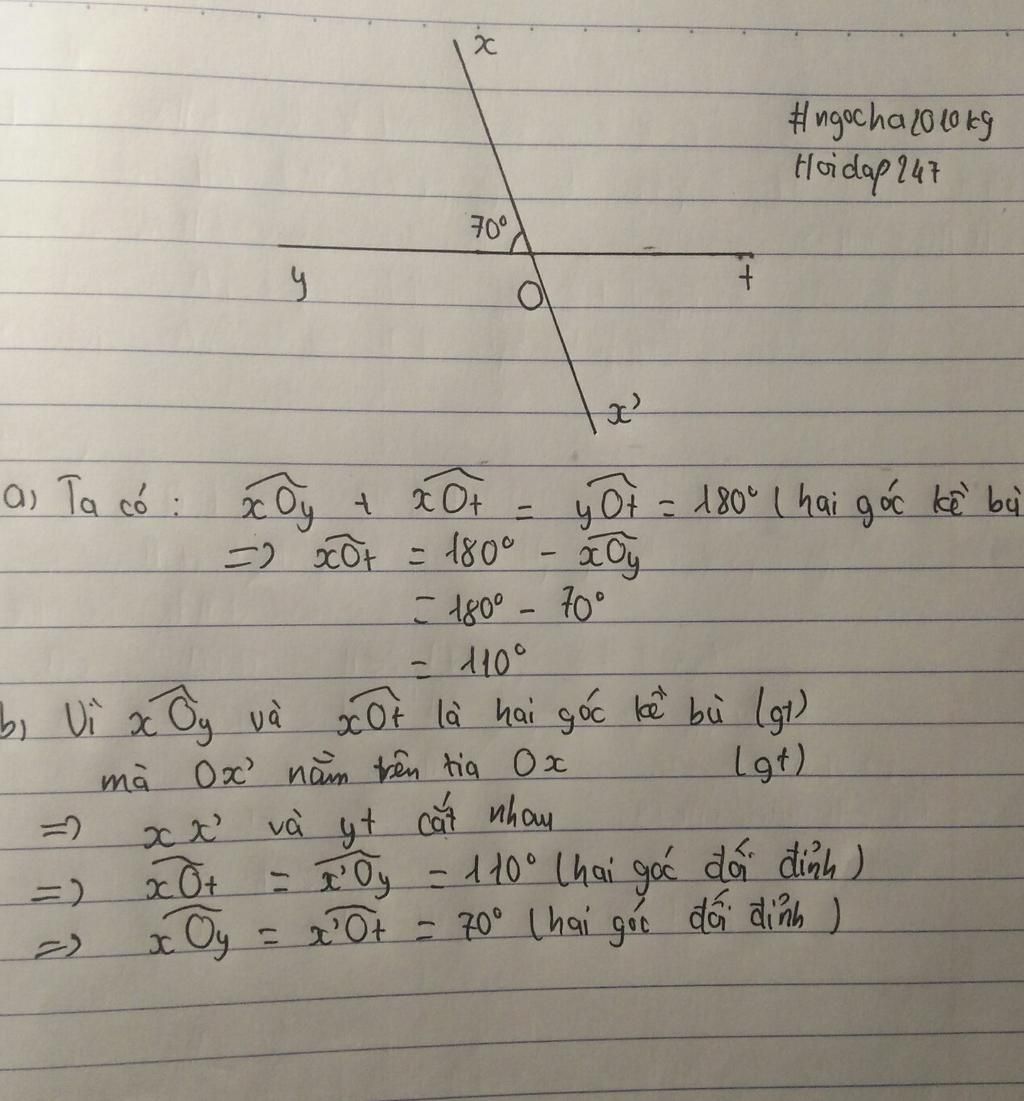 x
#ngocha2010kg
Hoidap247
70°
y
t
O
x'
a) Ta có: xOy + xOt = yOt = 180° (hai góc kề bù
=> xOt = 180° - xOy
= 180° - 70°
= 110°
b) Vì xOy và xOt là hai góc kề bù (gt)
mà Ox' nằm trên tia Ox (gt)
=> xx' và yt cắt nhau
=> xOt = x'Oy = 110° (hai góc đối đỉnh)
=> xOy = x'Ot = 70° (hai góc đối đỉnh)